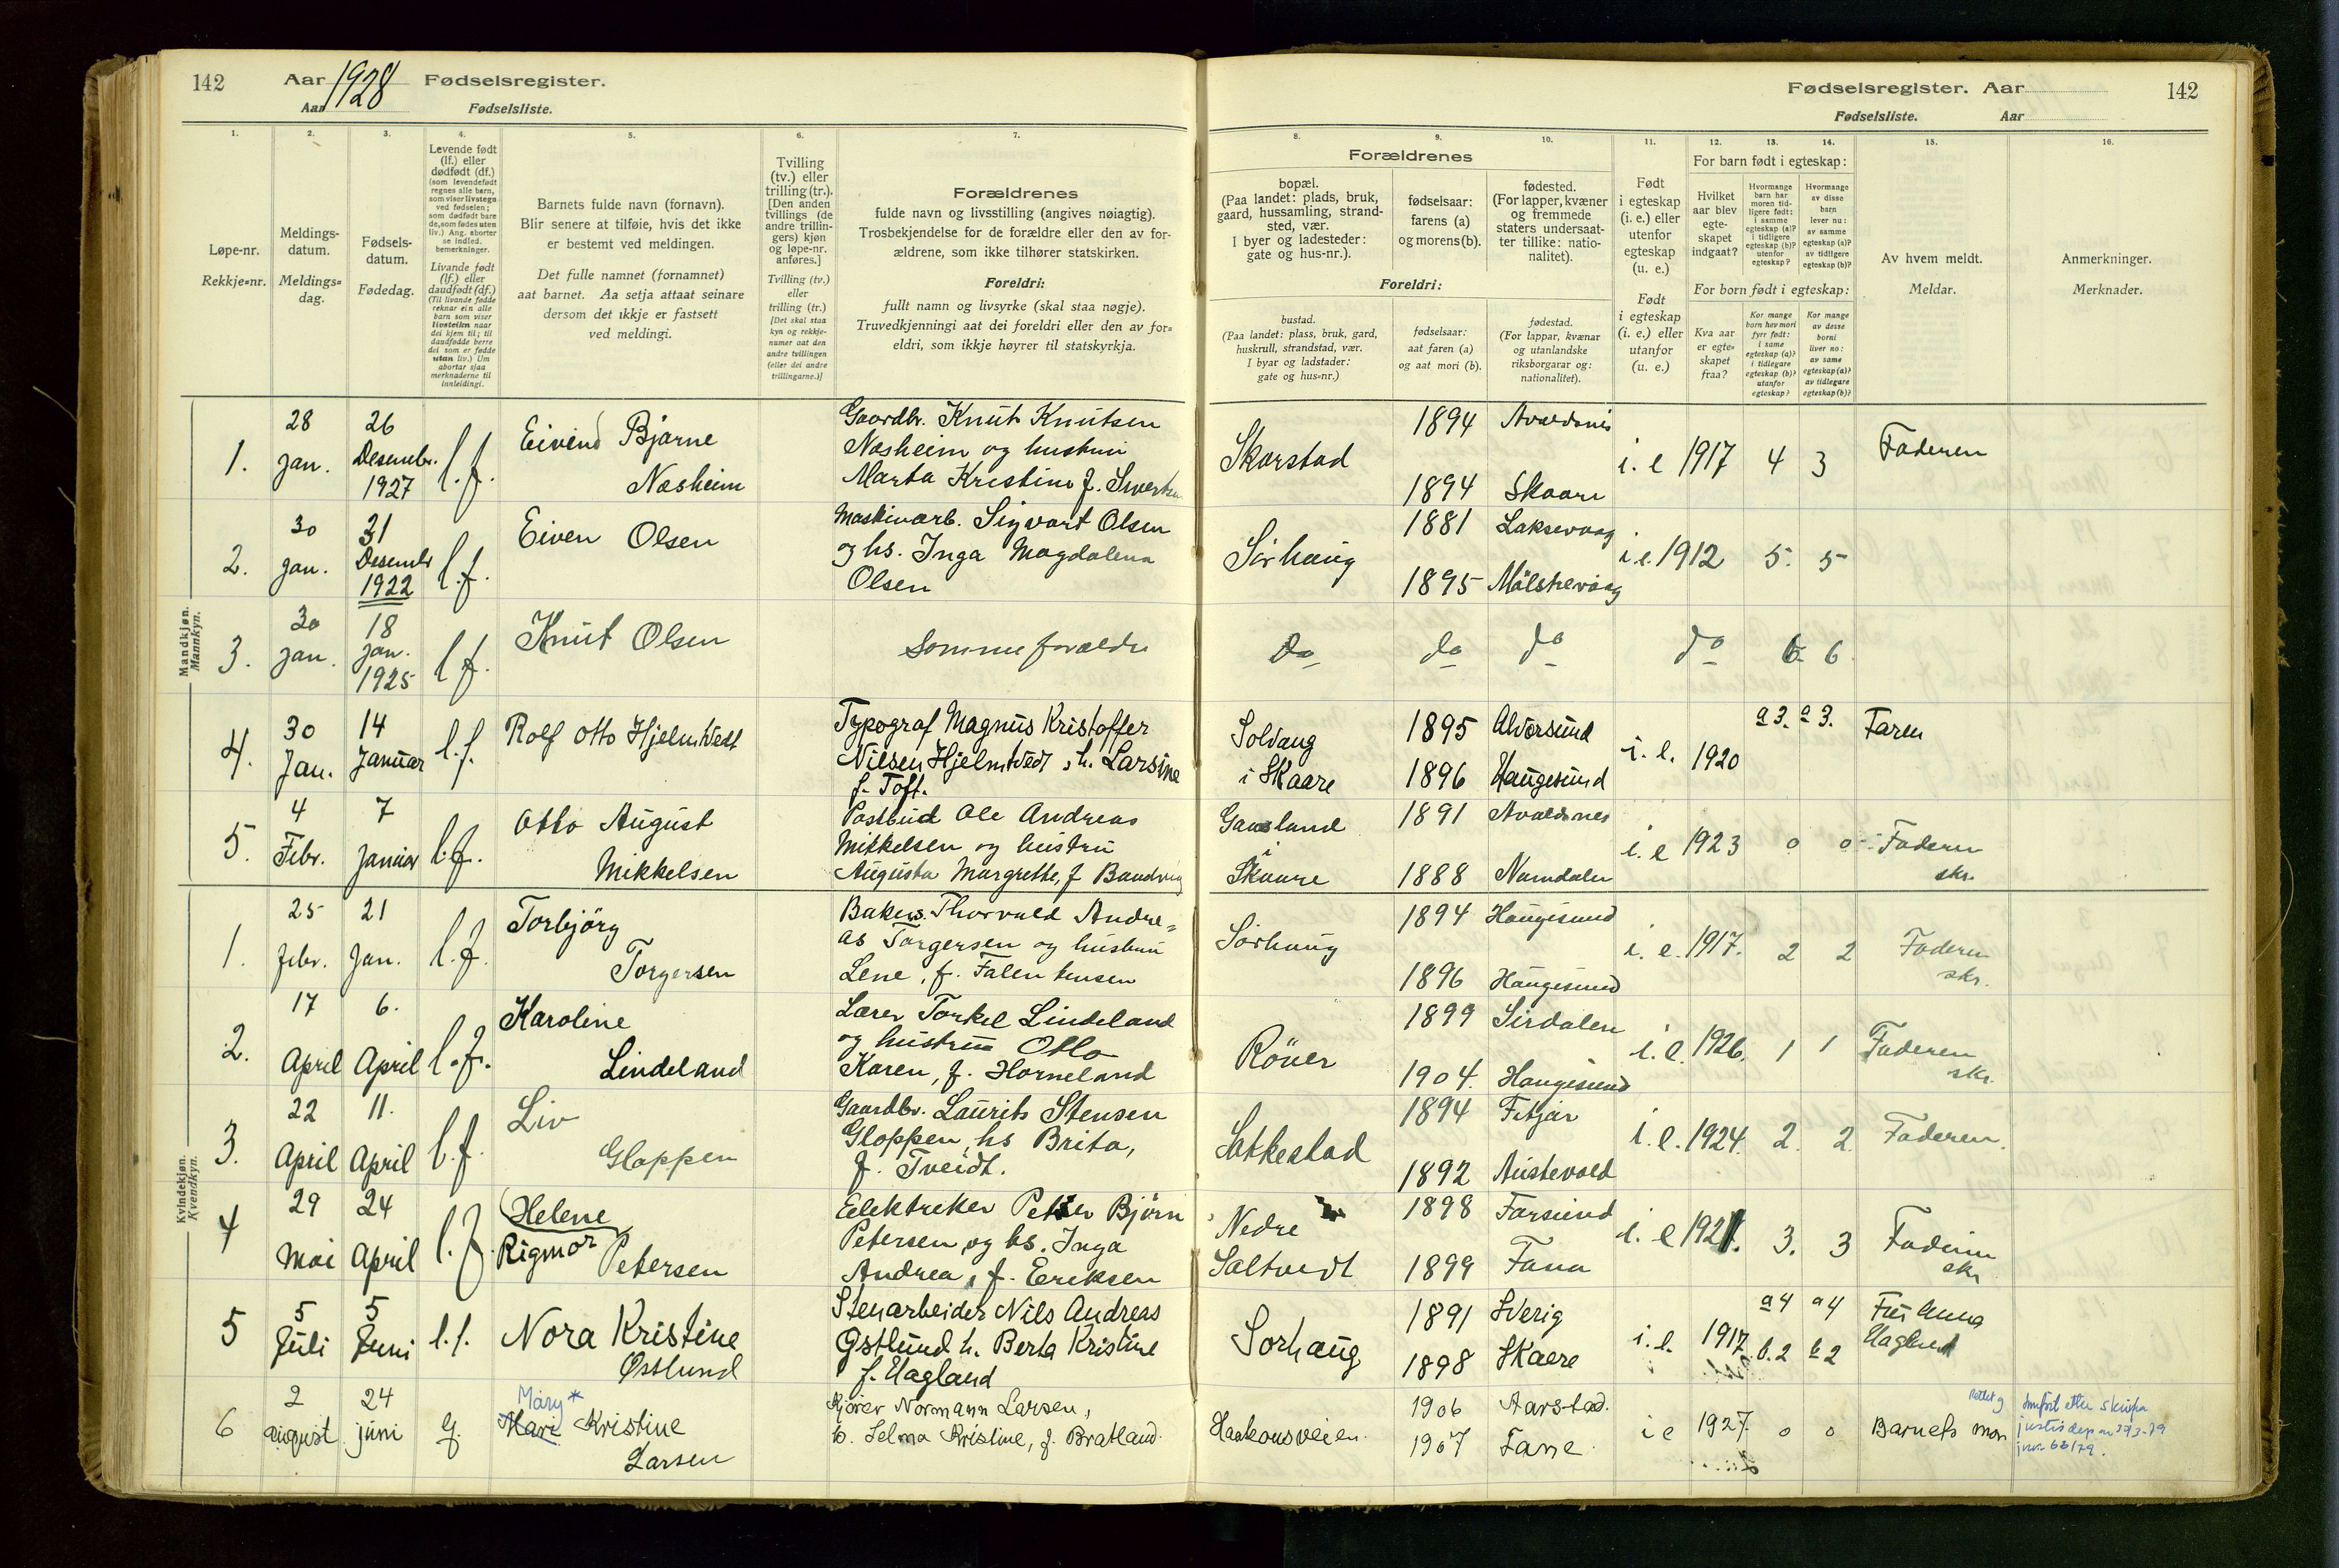 142 Aar 1928 Fødselsregister.
Aar Fødselsliste.
Fødselsregister. Aar 142
Fødselsliste. Aar
1. 2. 3. 4. 5. 6. 7. 8. 9. 10. 11. 12. 13. 14. 15. 16.
Løpe-nr.
Rekkje=nr.
Meldings-
datum.
Meldings=
dag.
Fødsels-
datum.
Fødedag.
Levende født
(lf.) eller
dødfødt (df.)
(som levendefødt
regnes alle barn,
som viser livstegn
ved fødselen;
som dødfødt bare
de, som fødes uten
liv.) Ang. aborter
se indled.
bemerkninger.
Livande født
(lf.) eller
daudfødt (df.)
(Til livande fødde
reknar ein alle
barn som viser
livsteikn naar
dei kjem til; til
daudfødde berre
dei som er fødde
utan liv.) Um
abortar sjaa
merknaderne til
innleidingi.
Barnets fulde navn (fornavn).
Blir senere at tilføie, hvis det ikke
er bestemt ved meldingen.
Det fulle namnet (fornamnet)
aat barnet. Aa setja attaat seinare
dersom det ikkje er fastsett
ved meldingi.
Tvilling
(tv.) eller
trilling (tr.).
[Den anden
tvillings (de
andre trillin-
gers) kjøn
og løpe-nr.
anføres.]
Tvilling (tv.)
eller
trilling (tr.)
[Det skal staa
kyn og rekkje-
numer aat den
andre tvillingen
(eller dei andre
trillingarne.)]
Forældrenes
fulde navn og livsstilling (angives nøiagtig).
Trosbekjendelse for de forældre eller den av for-
ældrene, som ikke tilhører statskirken.
Foreldri:
fullt namn og livsyrke (skal staa nøgje).
Truvedkjenningi aat dei foreldri eller den av for=
eldri, som ikkje høyrer til statskyrkja.
Forældrenes
bopæl.
(Paa landet: plads, bruk,
gaard, hussamling, strand-
sted, vær.
I byer og ladesteder:
gate og hus-nr.).
fødselsaar:
farens (a)
og morens (b).
fødested.
(For lapper, kvæner
og fremmede
staters undersaat-
ter tillike: natio-
nalitet).
Foreldri:
bustad.
(Paa landet: plass, bruk, gard,
huskrull, strandstad, vær.
I byar og ladstader:
gate og hus=nr.)
fødselsaar:
aat faren (a)
og aat mori (b).
fødestad.
(For lappar, kvænar
og utanlandske
riksborgarar og:
nationalitet).
Født
i egteskap
(i. e.) eller
utenfor
egteskap
(u. e.)
Født
i egteskap
(i. e.) eller
utanfor
(u. e.)
For barn født i egteskap:
Hvilket
aar blev
egte-
skapet
indgaat?
Hvormange
barn har
moren tid-
ligere født:
i samme
egteskap (a)?
i tidligere
egteskap (b)?
utenfor
egteskap?
Hvormange
av disse
barn
lever nu:
av samme
egteskap (a)?
av tidligere
egteskap (b)?
For born født i egteskap:
Kva aar
er egte=
skapet
fraa?
Kor mange
born hev mori
fyrr født:
i same
egteskap (a)?
i tidlegare
egteskap (b)?
utanfor
egteskap?
Kor mange
av desse
borni
liver no:
av same
egteskap (a)?
av tidlegare
egteskap (b)?
Av hvem meldt.
Meldar.
Anmerkninger.
Merknader.
Mandkjøn.
Mannkyn.
1. 28 jan. 26 Desembr. 1927 l.f. Eivind Bjarne Nesheim
Gaardbr. Knut Knutsen
Nesheim og hustru
Marta Kristine f. Sivertsen
Skarstad 1894 Avaldsnes 1894 Skaare i. e 1917 4 3 Faderen
2. 30 jan. 31 Desembr 1922 l.f. Eiven Olsen
Maskinarb. Sigvart Olsen
og hs. Inga Magdalena
Olsen
Sørhaug 1881 Laksevaag 1895 i.e. 1912 5. 5
3. 30 jan. 18 jan. 1925 l.f. Knut Olsen
Samme forældre
Do do do do 6 6.
4. 30 Jan. 14 Januar l.f. Rolf Otto Hjelmtvedt
Typograf Magnus Kristoffer
Nilsen Hjelmtvedt, h. Larsine
f. Toft.
Solvang
i Skaare 1895 Alversund 1896 Haugesund i. e. 1920 a 3. a 3. Faren
5. 4 Febr. 7 Januar l.f. Otto August Mikkelsen
Postbud Ole Andreas
Mikkelsen og hustru
Augusta Margrethe, f
i
Skaare 1891 Avaldsnes 1888 Namdalen i. e 1923 0 0 Faderen skr.
Kvindekjøn.
Kvendkyn.
1. 25 febr. 21 Jan. l.f. Torbjörg Torgersen
Bakers. Thorvald Andre=
as Torgersen og hustru
Lene, f. Falentinsen
Sørhaug 1894 Haugesund 1896 Haugesund i. e. 1917. 2 2 Faderen skr.
2. 17 April 6. April l.f. Karoline Lindeland
Lærer Torkel Lindeland
og hustru Otto
Karen, f. Horneland
Röver 1899 Sirdalen 1904. Haugesund i. e. 1926. 1 1 Faderen skr.
3. 22 April 11. April l.f. Liv Gloppen
Gaardbr. Laurits Stensen
Gloppen, hs Brita,
f. Tveidt.
1894 Fitjar 1892 Austevold i. e. 1924. 2. 2. Faderen.
4 29 Mai 24 April l.f. Helene
Rigmor Petersen
Elektriker Petter Björn
Petersen og hs. Inga
Andrea, f. Eriksen
Nedre
Saltvedt 1898 Farsund 1899 Fana i. e 1921. 3. 3 Faderen skr
5 5 Juli 5 Juni l.f. Nora Kristine Østlund
Stenarbeider Nils Andreas
Østlund h. Berta Kristine
f. Hagland
Sørhaug 1891 Sverig 1898 Skaare i. e. 1917. a 4 a 4 b. 2 b 2 Fru Anna
Hagland
6 2 august 24 juni Mary*
Mari Kristine
Larsen
Kjører Normann Larsen,
h. Selma Kristine, f. Bratland.
Haakonsveien. 1906 Aarstad. 1907 Fane i e 1927. 0 0 Barnets mor